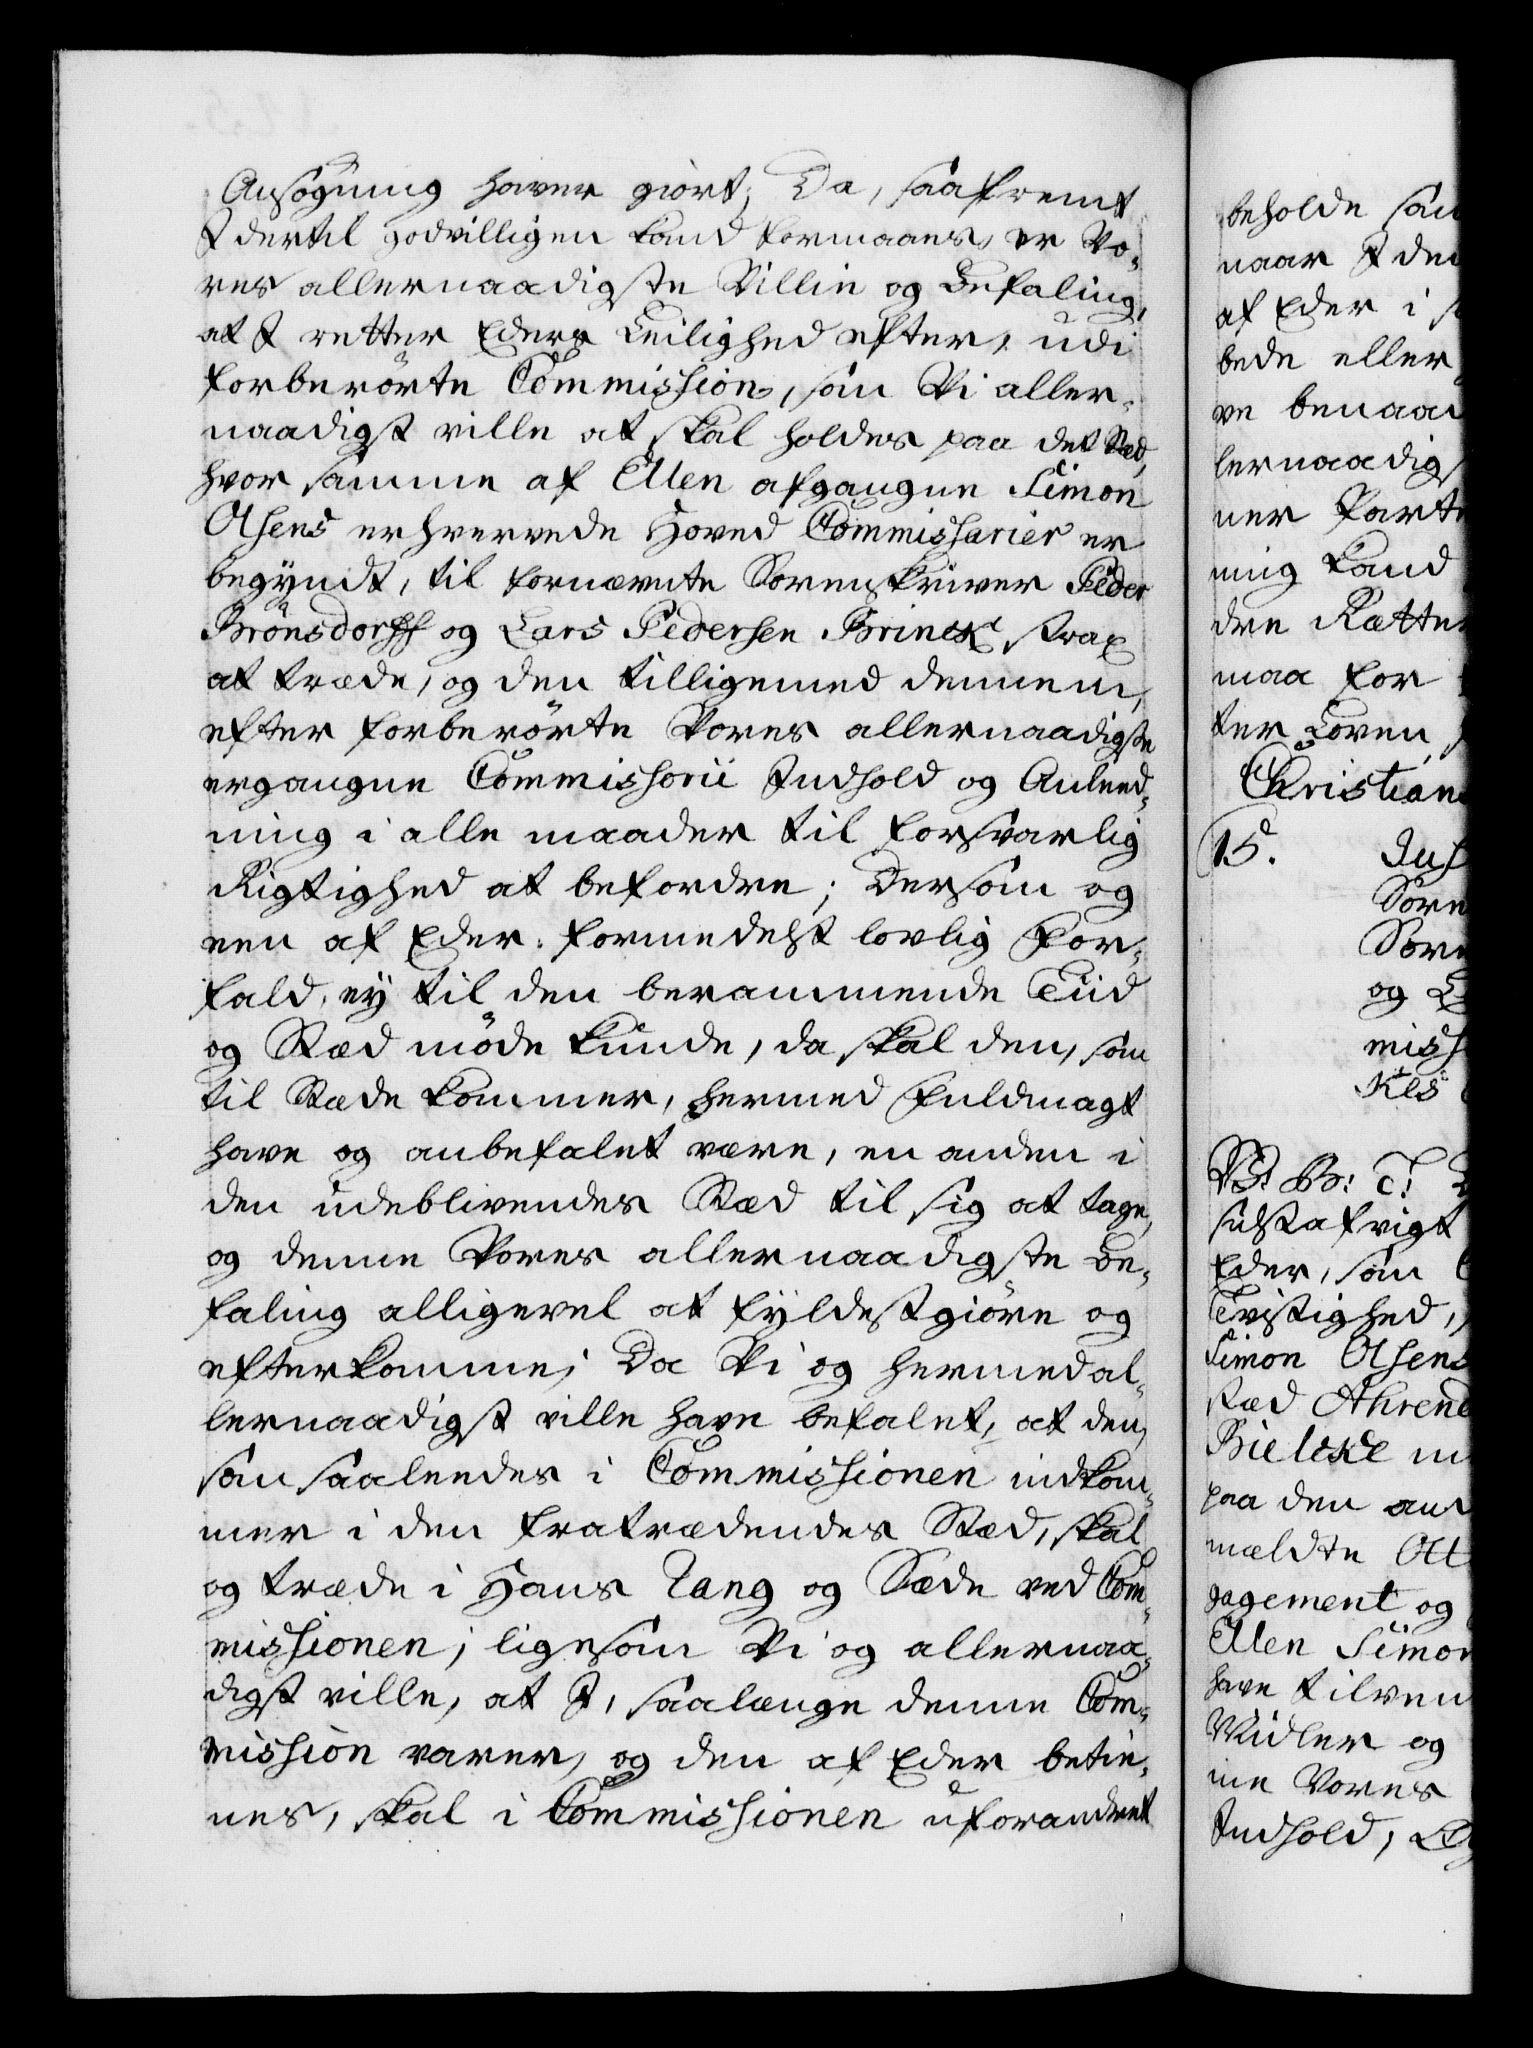 Ansøgning haver giort; Da, saafremt
I dertil godvilligen kand formaaes, er Vo-
res allernaadigste Villie og Befaling,
at I retter Eders Leilighed efter, udi
forberørte Commission, som Vi aller-
naadigst ville at skal holdes paa det Stæd,
hvor samme af Ellen afgangne Simon
Olsens erhvervede Hoved Commissarier er
begyndt, til fornævnte Sorenskriver Peder
Brønsdorff og Lars Pedersen Brinck strax
at træde, og den tilligemed dennem,
efter forberørte Vores allernaadigste
ergangne Commissorii Indhold og Anleed-
ning i alle maader til forsvarlig
Rigtighed at befordre; Dersom og
een af Eder formedelst lovlig For-
fald, ey til den berammende Tiid
og Stæd møde kunde, da skal den, som
til Stæde kommer, hermed fuldmagt
have og anbefalet være, en anden i
den udeblivendes Stæd til sig at tage,
og denne Vores allernaadigste Be-
faling alligevel at fyldestgiøre og
efterkomme; Da Vi og hermed al-
lernaadigst ville have befalet, at den,
som saaleedes i Commissionen indkom-
mer i den fratrædendes Stæd, skal
og træde i Hans Rang og Sæde ved Com-
missionen; ligesom Vi og allernaa-
digst ville, at I, saalænge denne Com-
mission varer, og den af Eder betie-
nes, skal i Commissionen uforandret
beholde sam
naar I den
af Eder i
bede eller
ve benaad
lernaadigs
ner Parte
ning kand
dre Rætter
maa for
ter Loven
Christians
15.
Sore
Sore
og L
missi
Kls
V. G: T:
Eder, som
Tvistighed,
Simon Olsens
stæd Ahrend
Bielcke
paa den and
mældte Ott
gagement og
Ellen Simon
have tilven
Midler og
ne Vores
Indhold,